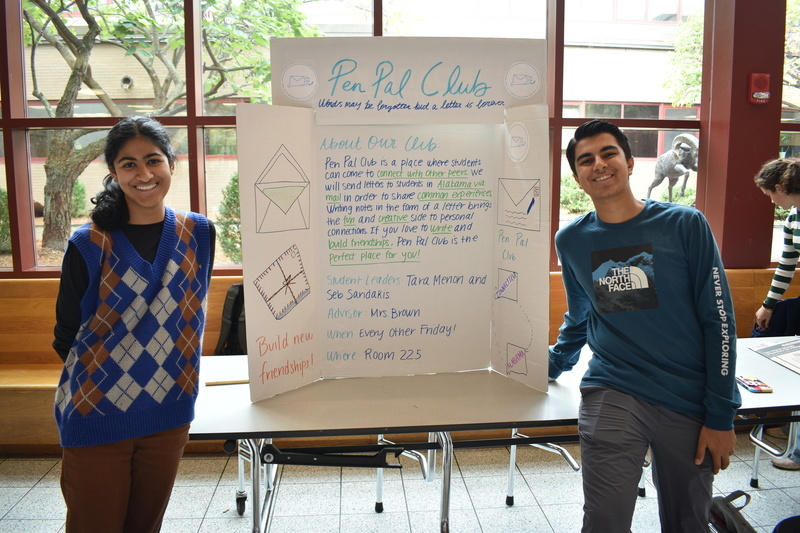 Pen Pal Club
Words may be forgotten but a letter is forever
About Our Club
Pen Pal Club is a place where students
can come to connect with other peers. We
will send letters to students in Alabama via
mail in order to share common experiences.
Writing notes in the form of a letter brings
the fun and creative side to personal
connections. If you love to write and
build friendships, Pen Pal Club is the
perfect place for you!
Student Leaders: Tara Menon and
Seb Sandakis
Advisor: Mrs Brown
When: Every Other Friday!
Where: Room 225
Build new
friendships!
Pen Pal
Club
CONNECTICUT
ALABAMA
THE
NORTH
FACE
NEVER STOP EXPLORING